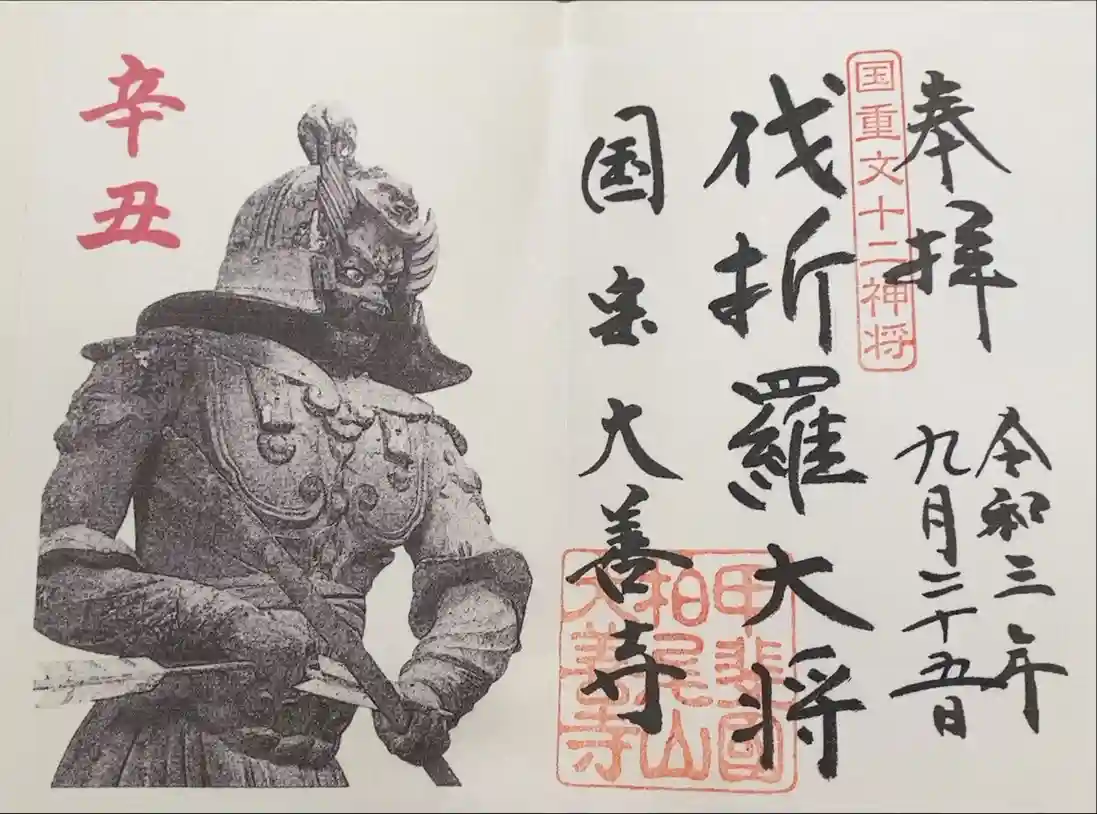 奉拝
令和三年
九月二十五日
国重文十二神将
伐折羅大将
国宝大善寺
甲斐國
柏尾山
大善寺
辛丑